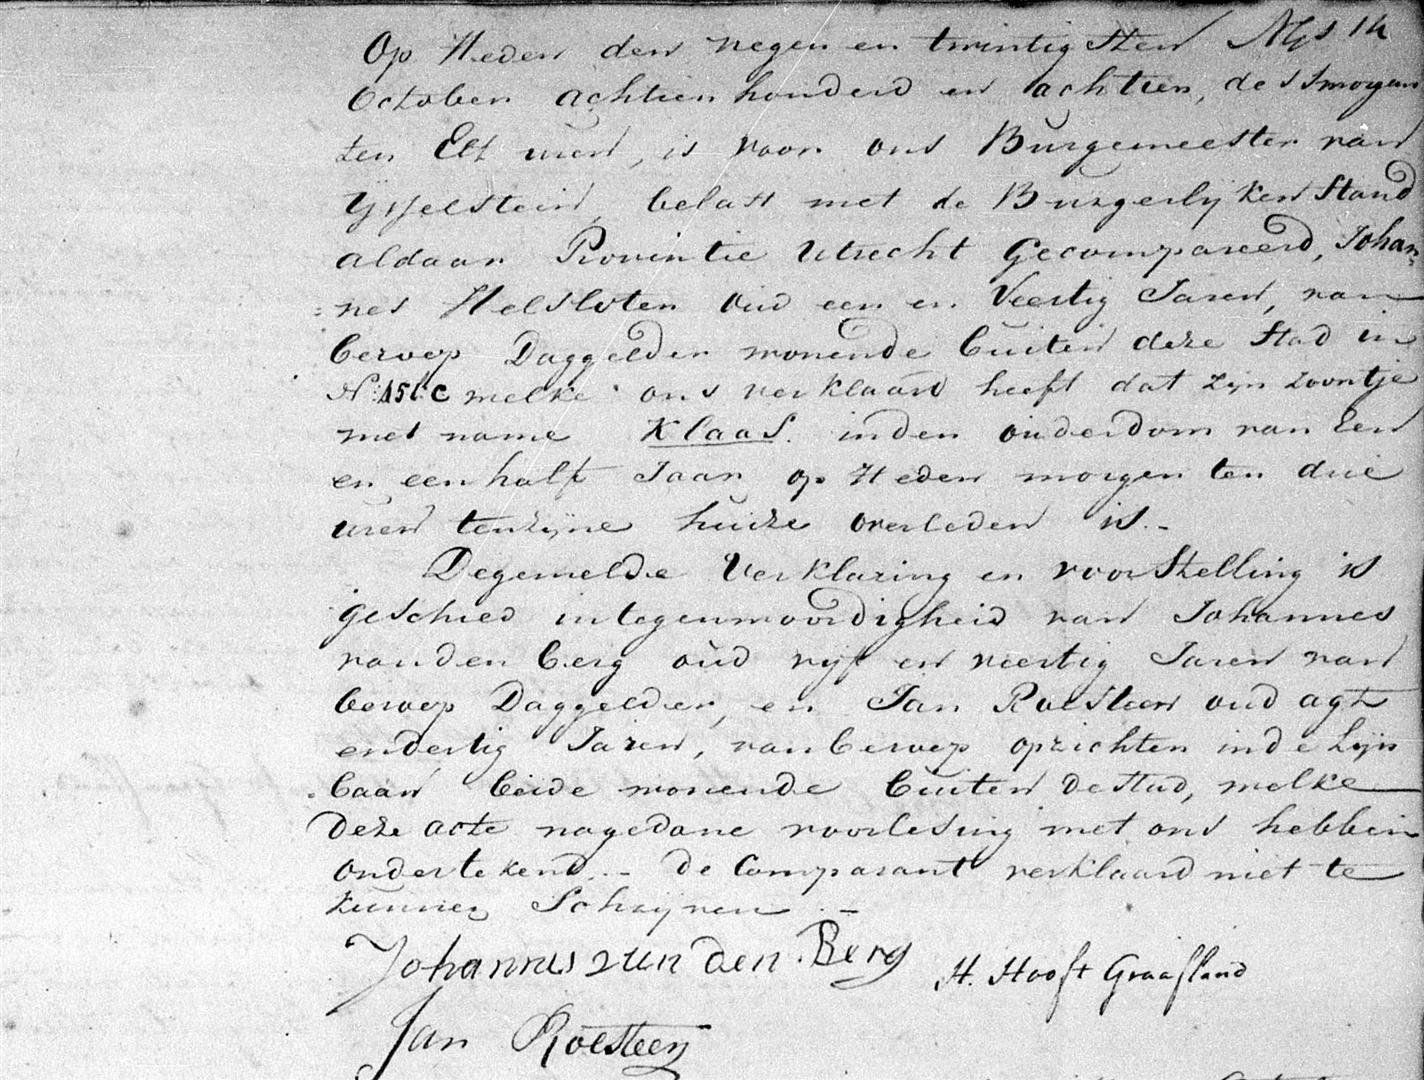 Op Heden den negen en twintigsten No 14
October achtien honderd en achtien, des smorgens
ten Elf uren, is voor ons Burgemeester van
IJsselstein, belast met de Burgerlijken Stand
aldaar Provintie Utrecht Gecompareerd, Johan-
nes Helsloten oud een en Veertig Jaren, van
beroep Daggelder wonende buiten deze Stad in
N: welke ons verklaard heeft dat zijn zoontje
met name Klaas. inden ouderdom van Een
en een half Jaar op Heden morgen ten drie
uren tenzijne huize overleden is.-
Degemelde Verklaring en voorstelling is
geschied integenwoordigheid van Johannes
vanden berg oud vijf en veertig Jaren van
beroep Daggelder, en Jan Roesteen oud agt
endertig Jaren, vanberoep opzichter inde Lijn
baan beide wonende buiten destad, welke
deze acte nagedane voorlesing met ons hebben
ondertekend.- de Comparant verklaard niet te
kunnen Schrijven.-
Johannes van den Berg H. Hooft Graafland
Jan Roesteen